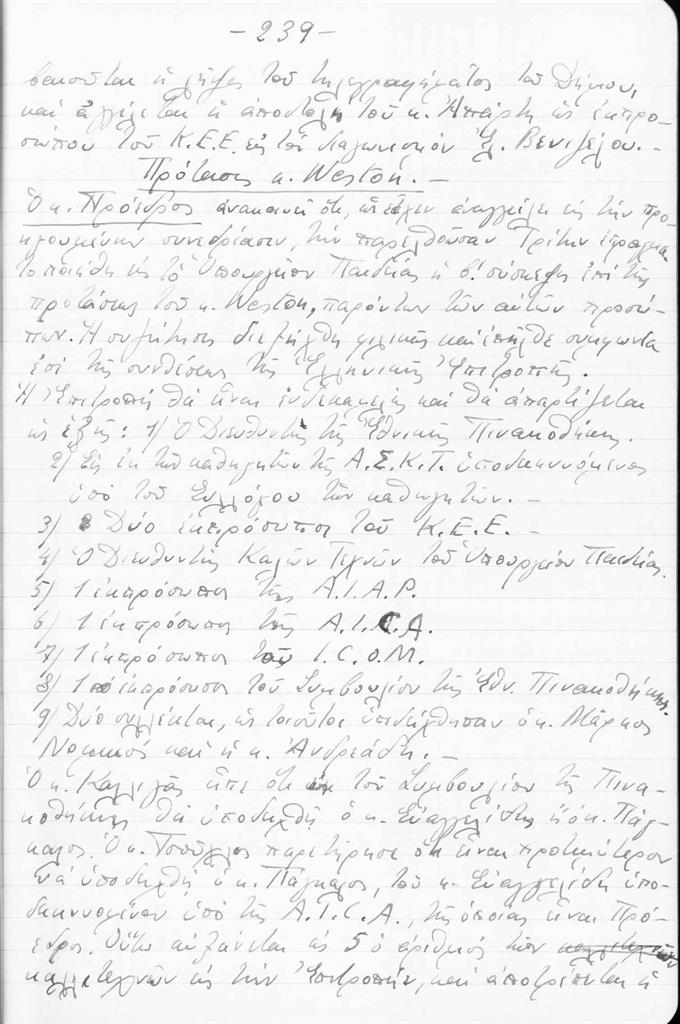 -239-
ἡ λῆψις τοῦ τηλεγραφήματος τοῦ Δήμου,
καὶ ἀγγέλεται ἡ ἀποστολὴ τοῦ κ. Ἀπάρτη ὡς ἐκπρο-
σώπου τοῦ Κ.Ε.Ε. εἰς τὸν διαγωνισμὸν Ἐλ. Βενιζέλου. -
Πρότασις κ. Weston. -
Ὁ κ. Πρόεδρος ἀνακοινεῖ ὅτι, ὡς εἶχεν ἀναγγείλει εἰς τὴν προ-
ηγουμένην συνεδρίασιν, τὴν παρελθοῦσαν Τρίτην ἐπραγμα-
τοποιήθη εἰς τὸ Ὑπουργεῖον Παιδείας ἡ β! σύσκεψις ἐπὶ τῆς
προτάσεως τοῦ κ. Weston, παρόντων τῶν αὐτῶν προσώ-
πων. Ἡ συζήτησις διεξήχθη φιλικῶς καὶ ἐπῆλθε συμφωνία
ἐπὶ τῆς συνθέσεως τῆς Ἑλληνικῆς Ἐπιτροπῆς.
Ἡ Ἐπιτροπὴ θὰ εἶναι ἑνδεκαμελὴς καὶ θὰ ἀπαρτίζεται
ὡς ἑξῆς: 1) Ὁ Διευθυντὴς τῆς Ἐθνικῆς Πινακοθήκης.
2) Εἷς ἐκ τῶν καθηγητῶν τῆς Α.Σ.Κ.Τ. ὑποδεικνυόμενος
ὑπὸ τοῦ Συλλόγου τῶν καθηγητῶν. -
3) Δύο ἐκπρόσωποι τοῦ Κ.Ε.Ε. -
4) Ὁ Διευθυντὴς Καλῶν Τεχνῶν τοῦ Ὑπουργείου Παιδείας.
5) 1 ἐκπρόσωπος τῆς A.I.A.P.
6) 1 ἐκπρόσωπος τῆς A.I.C.A.
7) 1 ἐκπρόσωπος τοῦ I.C.O.M.
8) 1 ἐκπρόσωπος τοῦ Συμβουλίου τῆς Ἐθν. Πινακοθήκης.
9) Δύο συλλέκται, ὡς τοιοῦτοι ὑπεδείχθησαν ὁ κ. Μάρκος
Νομικός καὶ ἡ κ. Ἀνδρεάδη. -
Ὁ κ. Καλλιγᾶς εἶπε ὅτι ἐκ τοῦ Συμβουλίου τῆς Πινα-
κοθήκης θὰ ὑποδειχθῆ ὁ κ. Εὐαγγελίδης ἢ ὁ κ. Πάγ-
καλος. Ὁ κ. παρετήρησε ὅτι εἶναι προτιμώτερον
νὰ ὑποδειχθῆ ὁ κ. Πάγκαλος, τοῦ κ. Εὐαγγελίδη ὑπο-
δεικνυομένου ὑπὸ τῆς A.I.C.A., τῆς ὁποίας εἶναι Πρό-
εδρος. Οὕτω αὐξάνεται εἰς 5 ὁ ἀριθμὸς τῶν
καλλιτεχνῶν εἰς τὴν Ἐπιτροπήν, καὶ ἀποτρέπεται ἡ